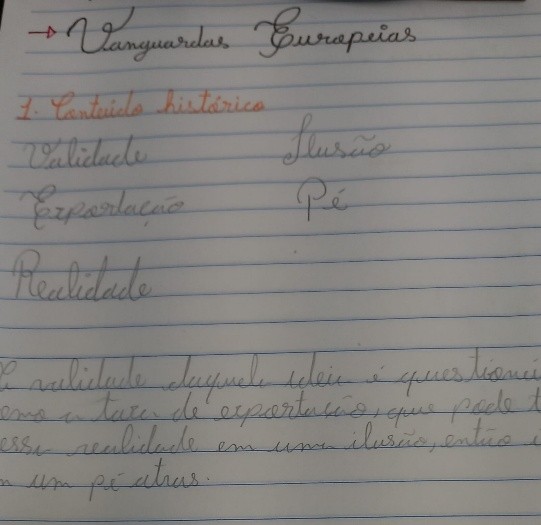 → Vanguardas Europeias
1. Conteúdo histórico
Validade Ilusão
Exportação Pé
Realidade
validade daquela ideia é
a taxa de exportação, que pode
essa realidade em uma ilusão, então
um pé atras.